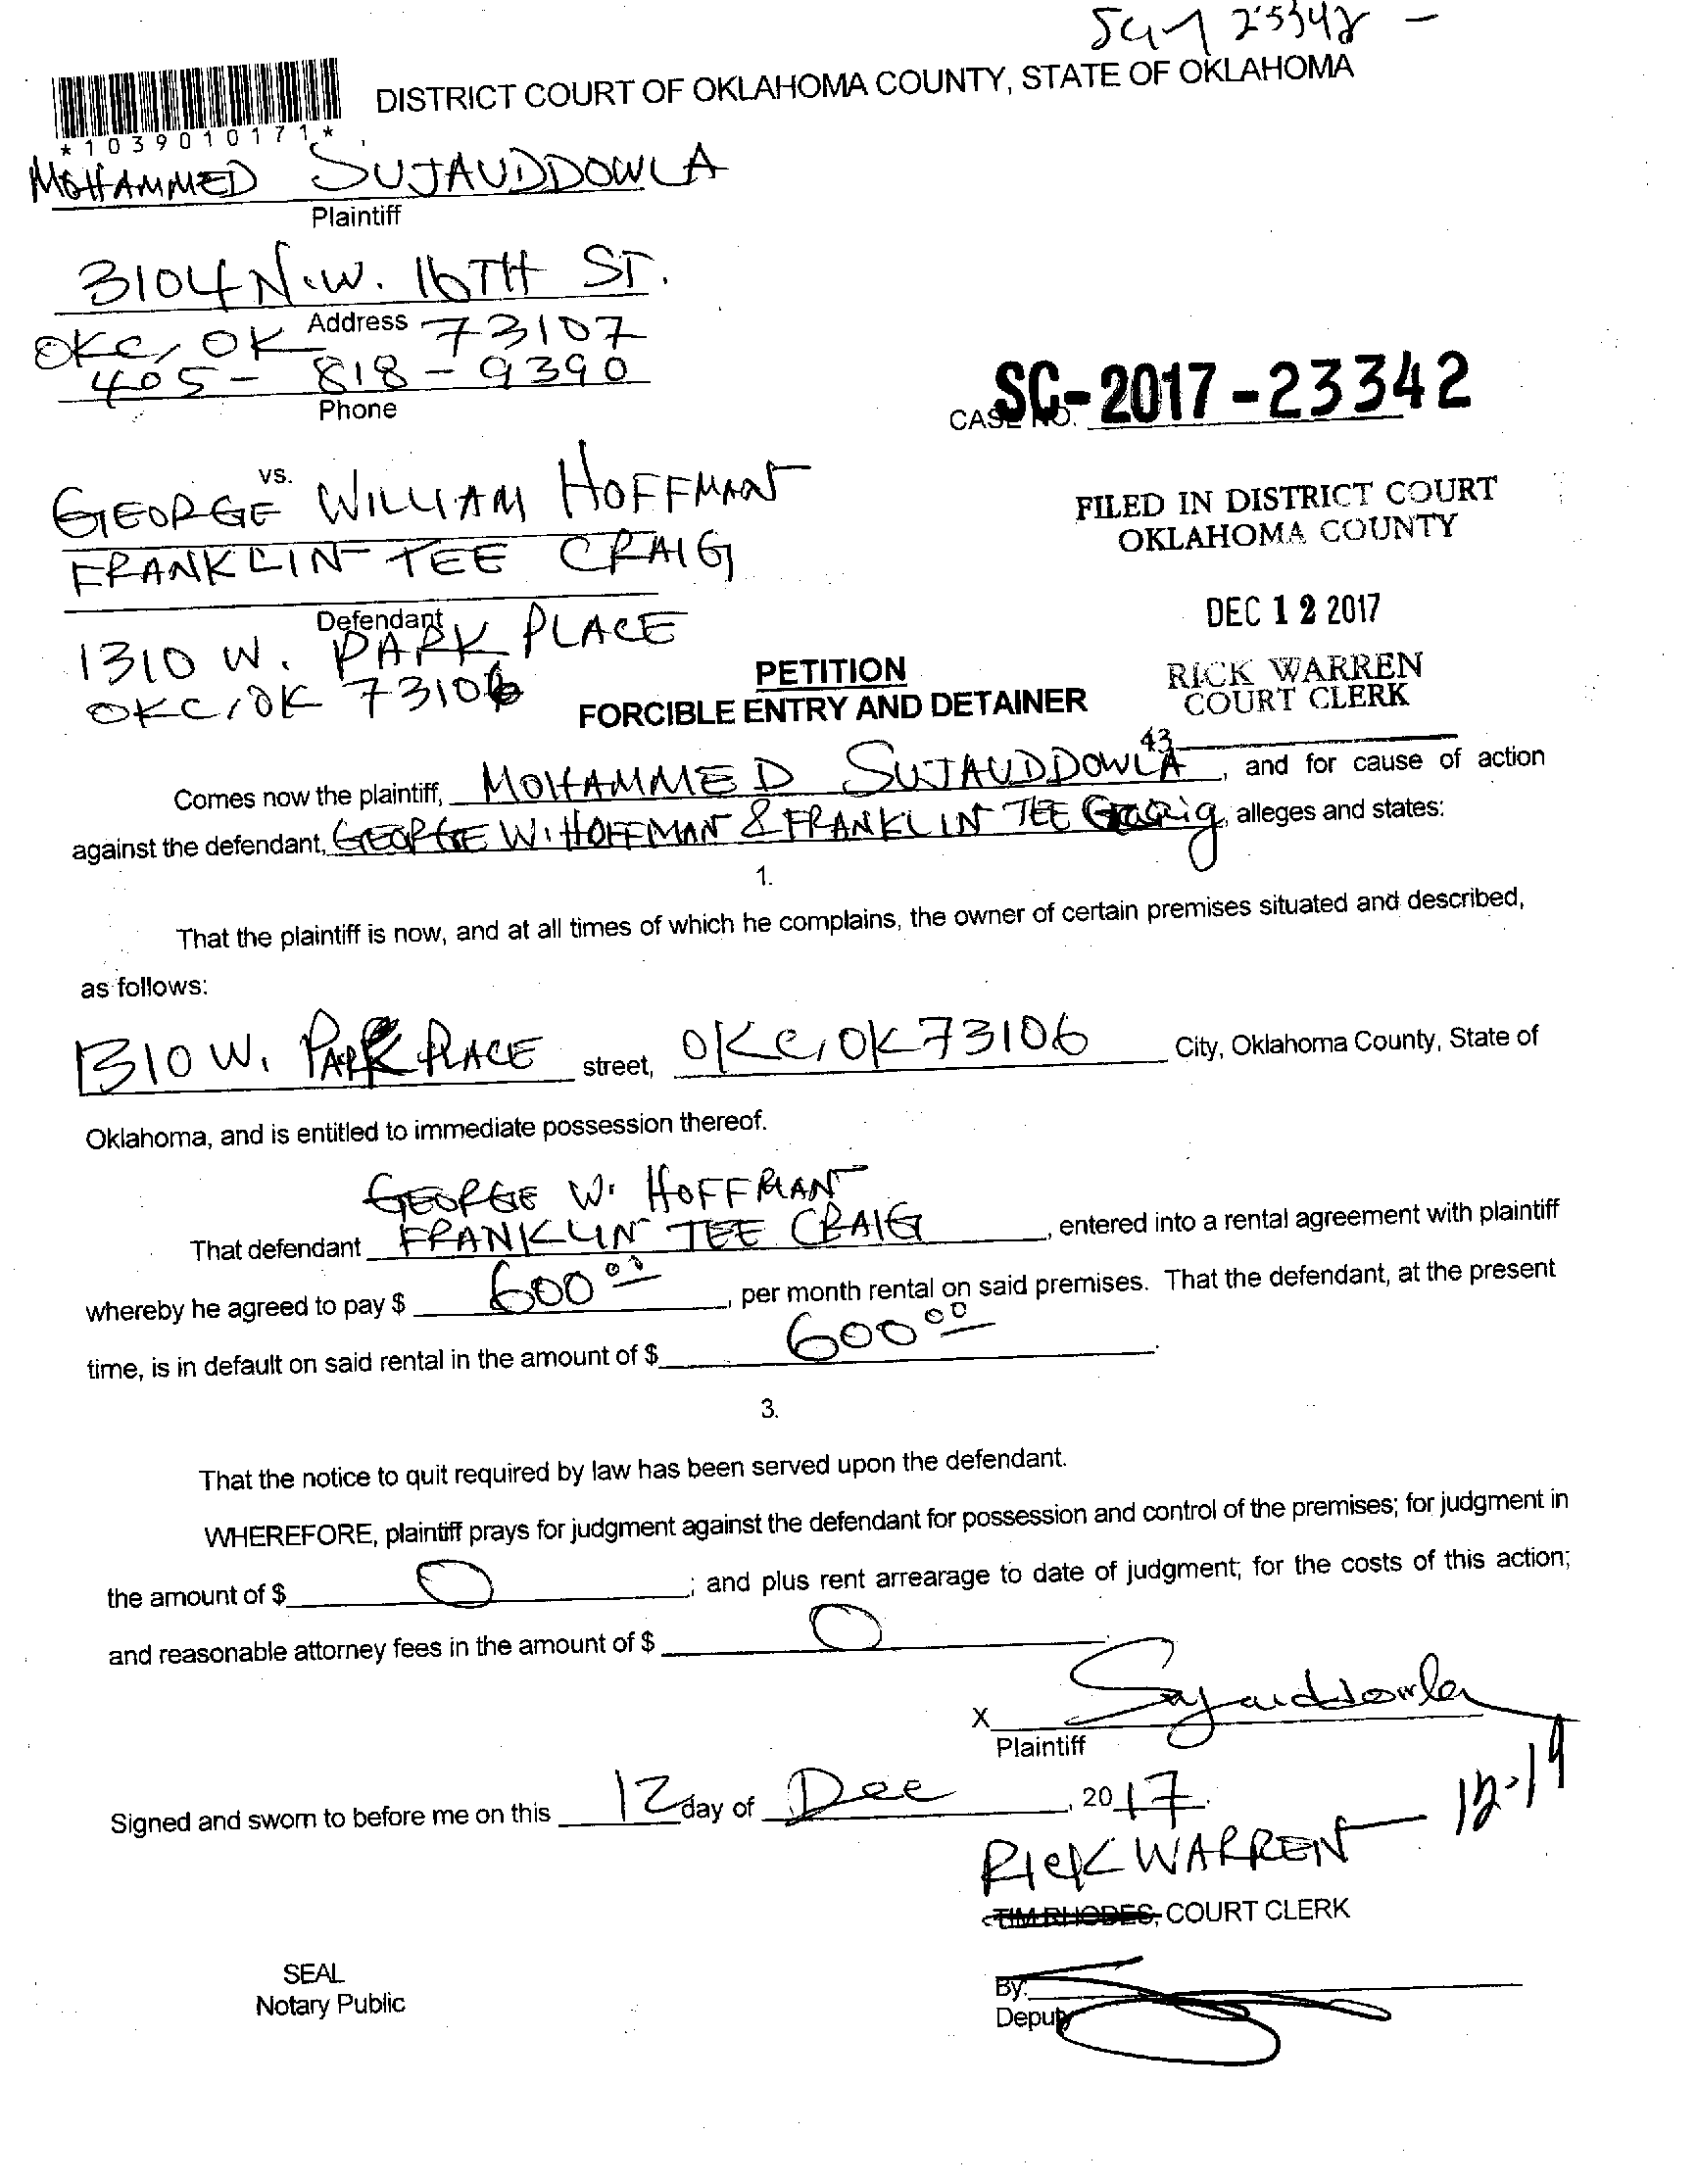 DISTRICT COURT OF OKLAHOMA COUNTY, STATE OF OKLAHOMA
*1039010171*
MOHAMMED SUJAUDDOWLA
Plaintiff
3104 N.W. 16TH ST.
Address
OKC, OK 73107
405-818-9390
Phone
CASE NO. SC-2017-23342
vs.
GEORGE WILLIAM HOFFMAN
FRANKLIN TEE CRAIG
Defendant
1310 W. PARK PLACE
OKC, OK 73106
FILED IN DISTRICT COURT
OKLAHOMA COUNTY
DEC 12 2017
RICK WARREN
COURT CLERK
43
PETITION
FORCIBLE ENTRY AND DETAINER
Comes now the plaintiff, MOHAMMED SUJAUDDOWLA, and for cause of action
against the defendant, GEORGE W. HOFFMAN & FRANKLIN TEE Craig, alleges and states:
1.
That the plaintiff is now, and at all times of which he complains, the owner of certain premises situated and described,
as follows:
1310 W. PARK PLACE street, OKC, OK 73106 City, Oklahoma County, State of
Oklahoma, and is entitled to immediate possession thereof.
GEORGE W. HOFFMAN
That defendant FRANKLIN TEE CRAIG, entered into a rental agreement with plaintiff
whereby he agreed to pay $ 600 00, per month rental on said premises. That the defendant, at the present
time, is in default on said rental in the amount of $ 600 00.
3.
That the notice to quit required by law has been served upon the defendant.
WHEREFORE, plaintiff prays for judgment against the defendant for possession and control of the premises; for judgment in
the amount of $ 0; and plus rent arrearage to date of judgment; for the costs of this action;
and reasonable attorney fees in the amount of $ 0
X Sujauddowla
Plaintiff
Signed and sworn to before me on this 12 day of Dec, 2017.
12-19
RICK WARREN
TIM RHODES, COURT CLERK
SEAL
Notary Public
By:
Deputy